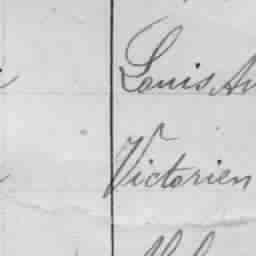 Louis Au
Victorien